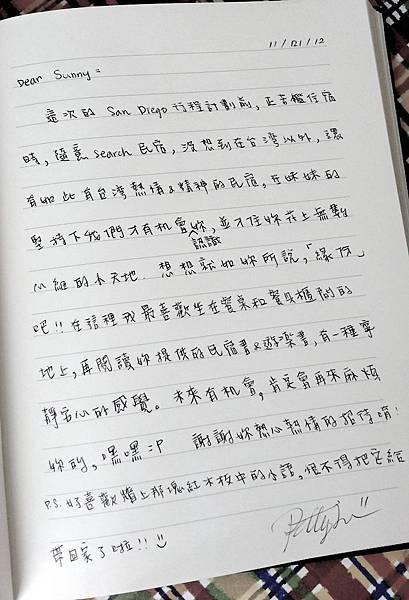 11/21/12
Dear Sunny:
這次的 San Diego 行程計劃前, 正苦惱住宿
時, 隨意 search 民宿, 沒想到在台灣以外, 讓
有如此有台灣熱情&精神的民宿, 在妹妹的
堅持下我們才有機會認識妳, 並才住妳花上無數
心細的小天地. 想想就如妳所說,「緣份」
吧!! 在這裡我最喜歡坐在置桌和餐具櫃間的
地上, 再閱讀妳提供的民宿書&遊樂書, 有一種寧
靜安心的感覺。 未來有機會, 肯定會再來麻煩
妳的, 嘿嘿 =P 謝謝妳熱心熱情的招待唷!
P.S. 好喜歡牆上那塊紅木板中的小語, 恨不得把它給
帶回家了啦!!